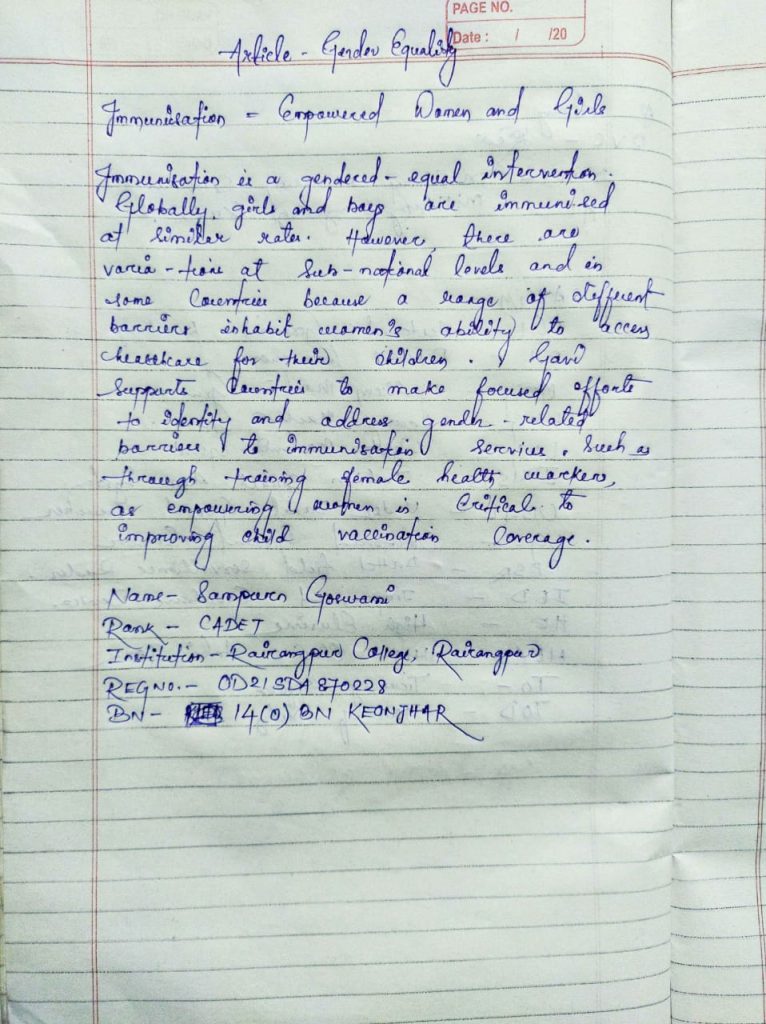 PAGE NO.
Date : / /20
Article - Gender Equality
Immunisation = Empowered Women and Girls
Immunisation is a gendered - equal intervention.
Globally, girls and boys are immunised
at similar rates. However, there are
varia - tions at Sub - national levels and in
some Countries because a range of different
barriers inhabit women's ability to access
healthcare for their children. Gavi
Supports Countries to make focused efforts
to identity and address gender - related
barriers to immunisation services. Such as
through training female health workers,
as empowering women is Critical to
improving child vaccination Coverage.
Name - Sampurn Goswami
Rank - CADET
Institution - Rairangpur College, Rairangpur
REGNO. - OD21SDA870228
BN - 14(O) BN KEONJHAR